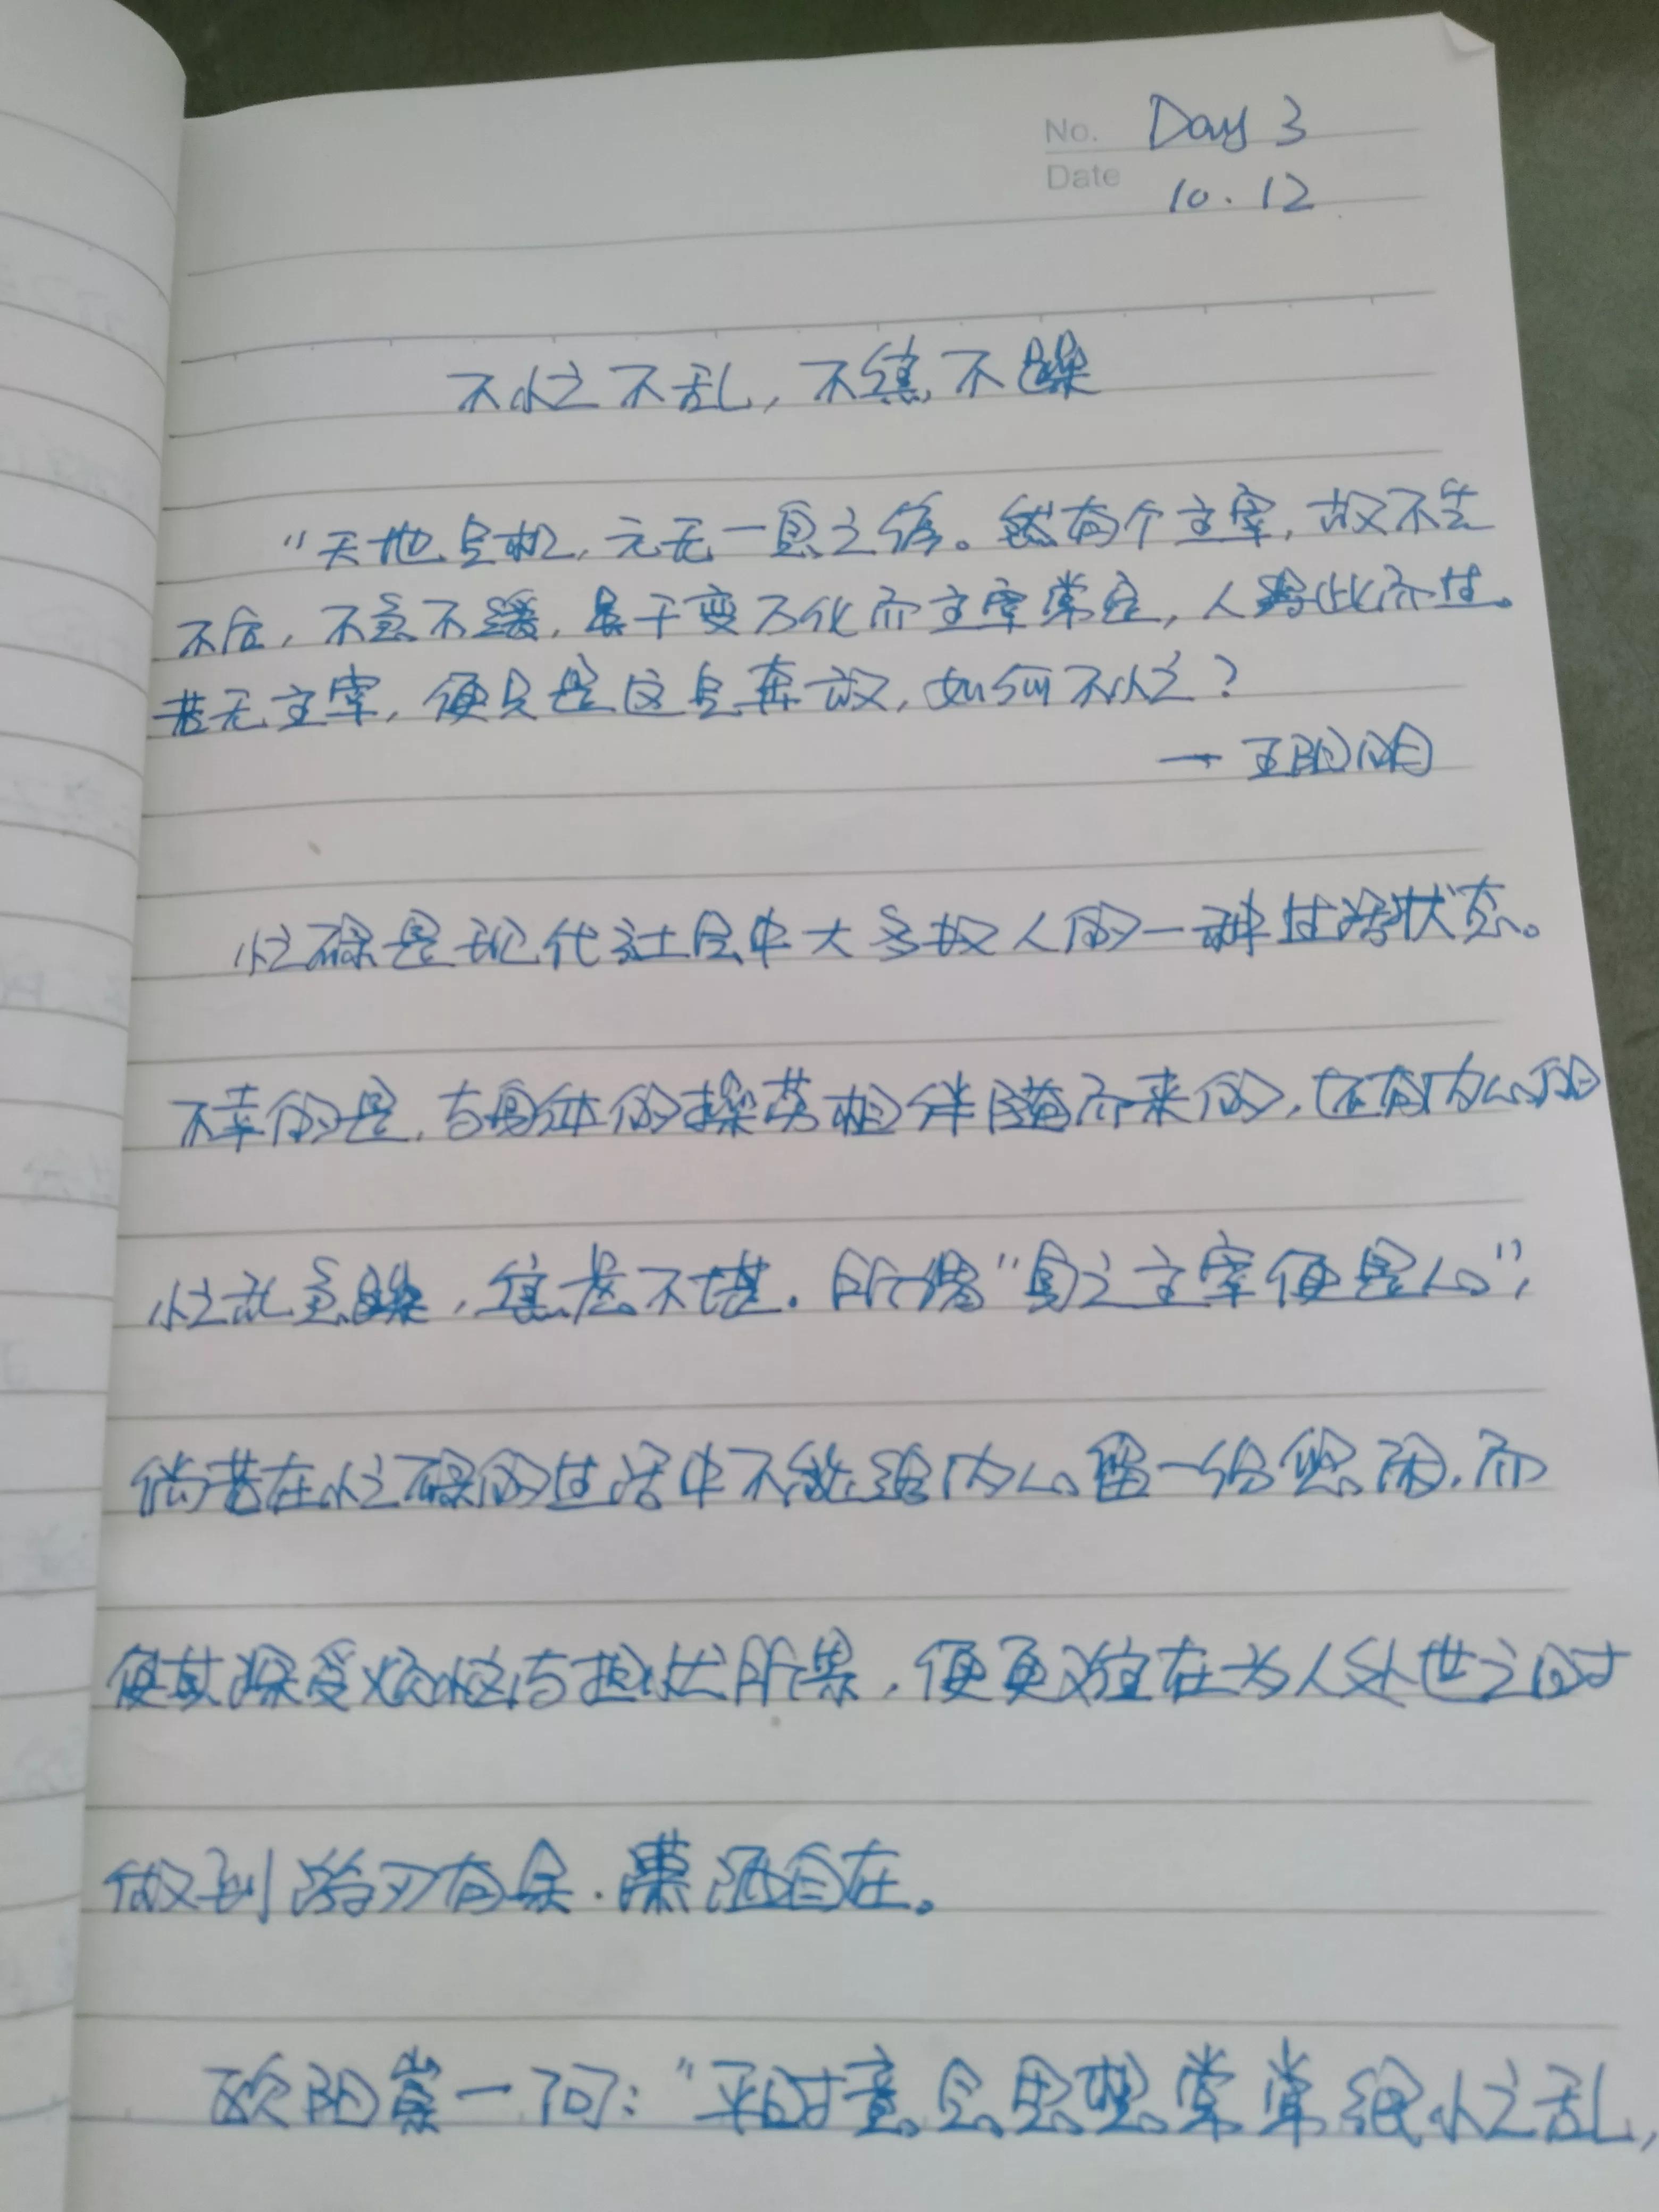 No. Day 3
Date 10.12
不忙不乱，不焦不躁
“天地气机，元无一息之停。然有个主宰，故不先
不后，不急不缓，虽千变万化而主宰常定，人得此而生。
若无主宰，便只是这气奔放，如何不忙？
— 王阳明
忙碌是现代社会中大多数人的一种生活状态。
不幸的是，与身体的操劳相伴随而来的，还有内心的
忙乱急躁，焦虑不堪．所谓“身之主宰便是心”，
倘若在忙碌的生活中不能给内心留一份悠闲，而
使其深受烦恼与担忧所累，便更难在为人处世之时
做到游刃有余．潇洒自在。
欧阳崇一问：“平时意思思想常常很忙乱，